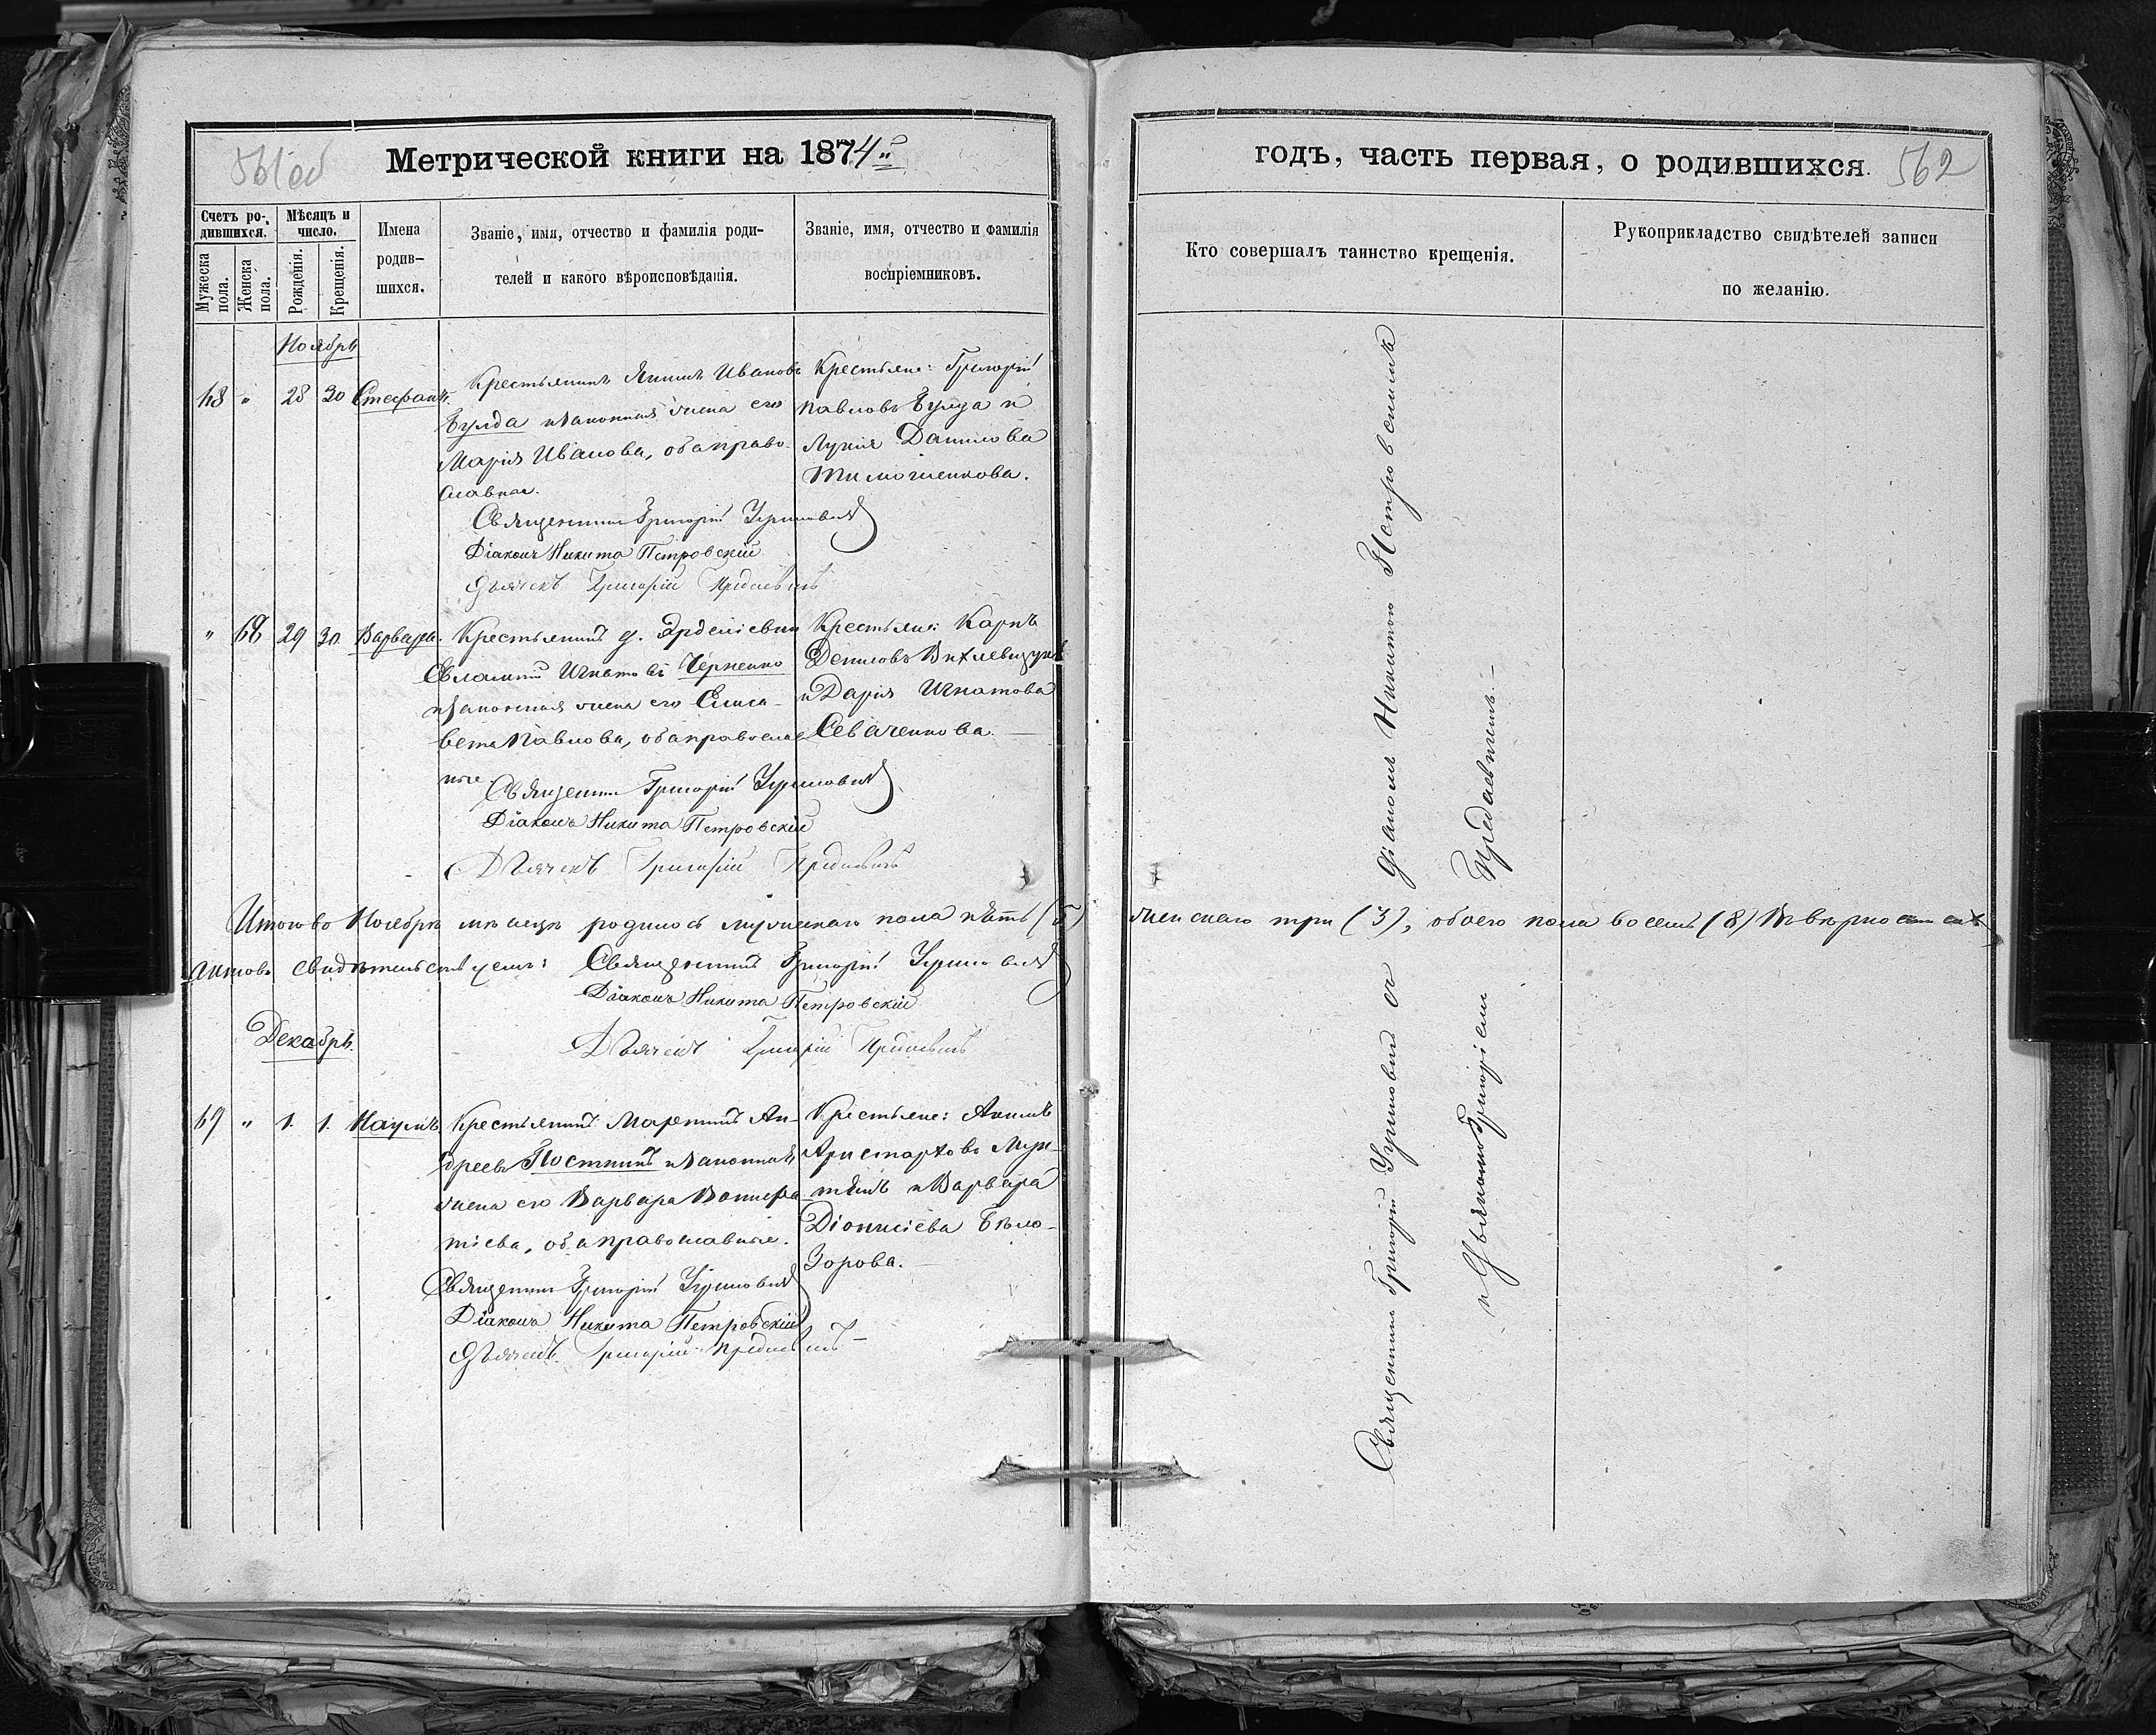 561об
Метрической книги на 1874й
Счетъ ро-
дившихся.
Мужеска пола.
Женска пола.
Мѣсяцъ и
число.
Рожденія.
Крещенія.
Имена
родив-
шихся.
Званіе, имя, отчество и фамилія роди-
телей и какого вѣроисповѣданія.
Званіе, имя, отчество и фамилія
воспріемниковъ.
Ноябрь
68 " 28 30 Стефанъ.
Крестьянинъ Якимъ Ивановъ
Булда и законная жена его
Марія Иванова, оба право-
славные.
Крестьяне: Григорій
Павловъ Булда и
Лукія Данилова
Тимошенкова.
Священникъ Григорій
Діаконъ Никита Петровскій
Дьячекъ Григорій
" 68 29 30 Варвара.
Крестьянинъ д.
Игнатовъ Черненко
и законная жена его Елиса-
вета Павлова, оба православ-
ные.
Крестьяне: Карпъ
Денисовъ
и Дарія Игнатова
Севаченкова.
Священникъ Григорій
Діаконъ Никита Петровскій
Дьячекъ Григорій
Итого въ Ноябрѣ мѣсяцѣ родилось мужескаго пола пять (5)
актовъ свидѣтельствуемъ: Священникъ Григорій
Діаконъ Никита Петровскій
Дьячекъ Григорій
Декабрь.
69 " 1. 1. Наумъ
Крестьянинъ Мартинъ Ан-
дреевъ Постникъ и законная
жена его Варвара Вонифа-
тіева, оба православные.
Крестьяне: Акимъ
Аристарховъ
и Варвара
Діонисіева Бѣло-
зорова.
Священникъ Григорій
Діаконъ Никита Петровскій
Дьячекъ Григорій
годъ, часть первая, о родившихся.
562
Кто совершалъ таинство крещенія.
Рукоприкладство свидѣтелей записи
по желанію.
женскаго три (3), обоего пола восемь (8) Въ вѣрности сихъ
Священникъ Григорій съ Діакономъ Никитою Петровскимъ
и Дьячкомъ Григоріемъ